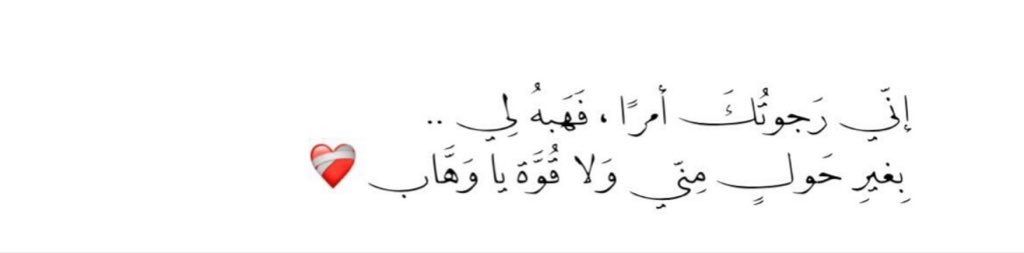 إنّي رَجوتُكَ أمرًا ، فَهَبهُ لِي ..
بِغيرِ حَولٍ مِنّي وَلا قُوَّة يا وَهَّاب ❤️‍🩹